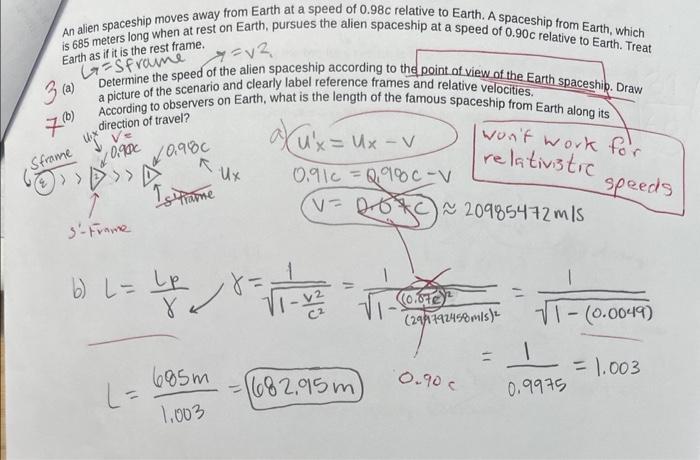 An alien spaceship moves away from Earth at a speed of 0.98c relative to Earth. A spaceship from Earth, which
is 685 meters long when at rest on Earth, pursues the alien spaceship at a speed of 0.90c relative to Earth. Treat
Earth as if it is the rest frame.
↳= Sframe
→=v2
3 (a) Determine the speed of the alien spaceship according to the point of view of the Earth spaceship. Draw
a picture of the scenario and clearly label reference frames and relative velocities.
7 (b) According to observers on Earth, what is the length of the famous spaceship from Earth along its
direction of travel?
Sframe
ux v=
0.90c
0.98c
ux
s'frame
s'-Frame
a) u'x = ux - v
0.91c = 0.98c - v
v = 0.07c ≈ 20985472 m/s
won't work for
relativistic
speeds
b) L = Lp/γ γ = 1/√(1 - v²/c²) = 1/√(1 - (0.07c)²/(299792458m/s)²) = 1/√(1 - (0.0049))
0.90c
= 1/0.9975 = 1.003
L = 685m/1.003 = 682.95m